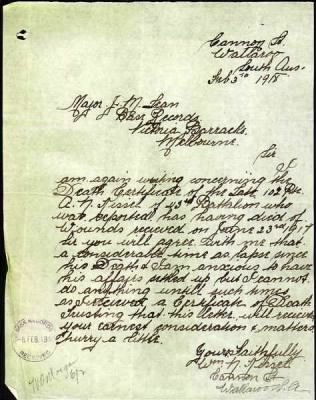 Cannon St.
Wallaroo
South Aus.
Feb 3rd 1918
Major J. M. Lean
Base Records
Victoria Barracks
Melbourne.
Sir
I
am again writing concerning the
Death Certificate of the Late 102 Pte
A. N. of 43rd Bathlion who
was reported has having died of
Wounds recieved on June 23rd 1917
Sir you will agree with me that
a considerable time as lapse since
his Death & I am ancious to have
his affairs settled up but I cannot
do anything untill such times
as I recieved a Certificate of Death
Trusting that this letter will recieve
your earnest consideration & matters
hurry a little.
Yours Faithfully
Wm N.
Cannon St
Wallaroo S.A.
8 FEB 191
RECEIVED